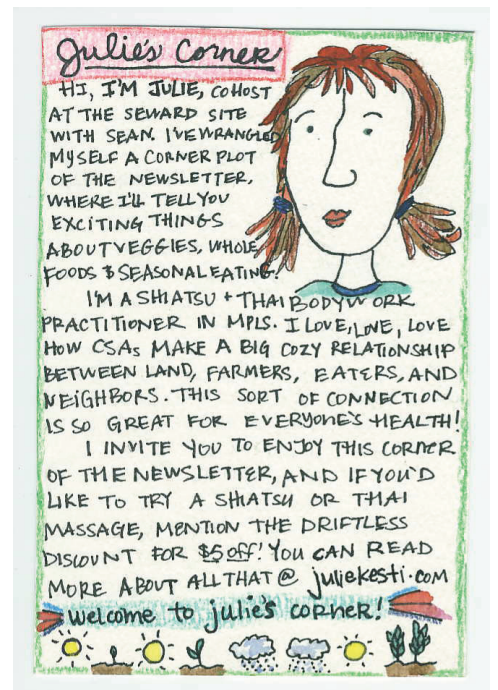 Julie's Corner
HI, I'M JULIE, COHOST
AT THE SEWARD SITE
WITH SEAN. I'VE WRANGLED
MYSELF A CORNER PLOT
OF THE NEWSLETTER,
WHERE I'LL TELL YOU
EXCITING THINGS
ABOUT VEGGIES, WHOLE
FOODS & SEASONAL EATING!
I'M A SHIATSU + THAI BODYWORK
PRACTITIONER IN MPLS. I LOVE, LOVE, LOVE
HOW CSAs MAKE A BIG COZY RELATIONSHIP
BETWEEN LAND, FARMERS, EATERS, AND
NEIGHBORS. THIS SORT OF CONNECTION
IS SO GREAT FOR EVERYONE'S HEALTH!
I INVITE YOU TO ENJOY THIS CORNER
OF THE NEWSLETTER, AND IF YOU'D
LIKE TO TRY A SHIATSU OR THAI
MASSAGE, MENTION THE DRIFTLESS
DISCOUNT FOR $5 off! YOU CAN READ
MORE ABOUT ALL THAT @ juliekesti.com
welcome to julie's corner!